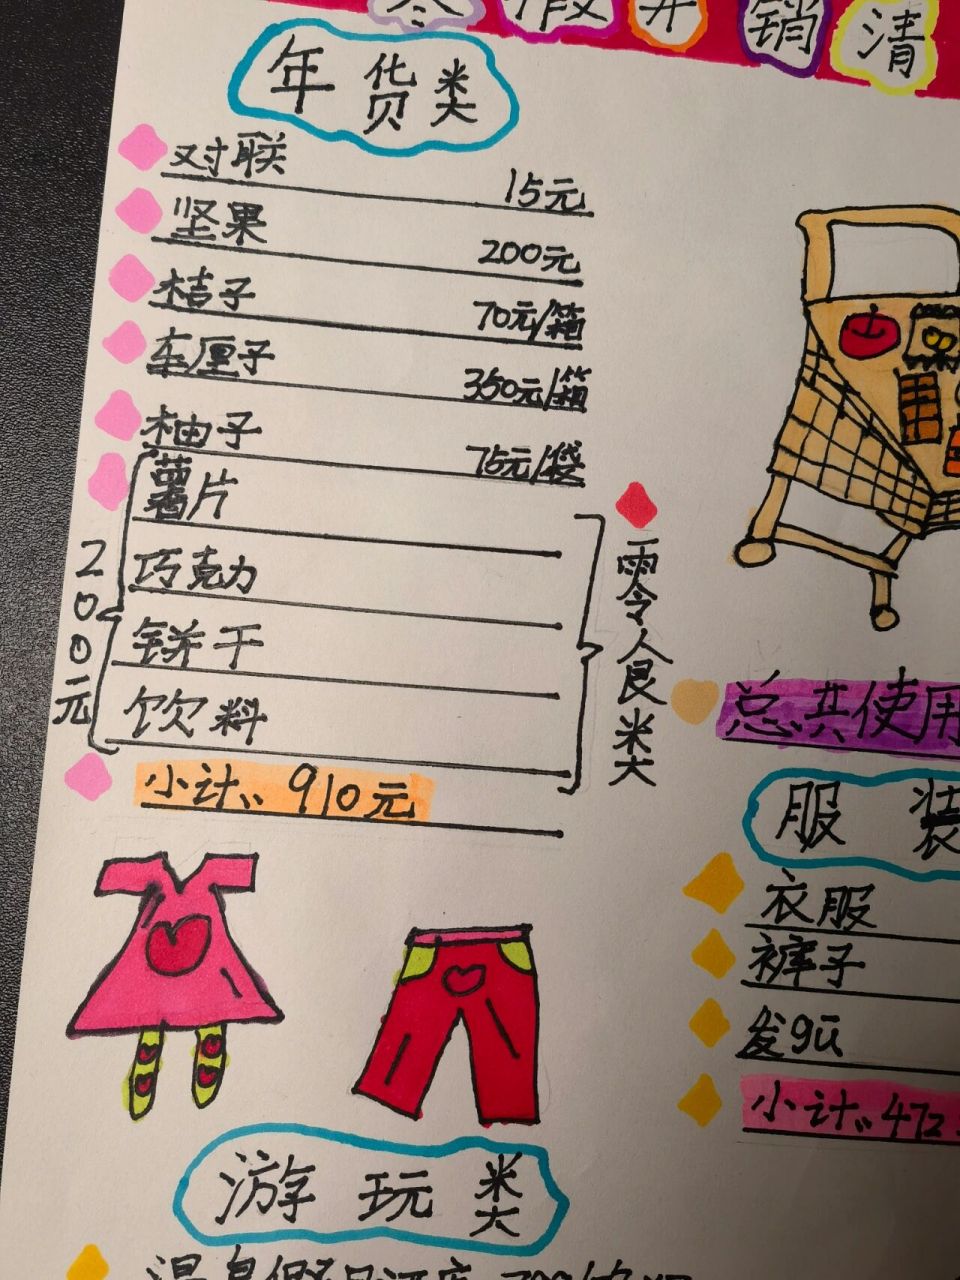 寒假开销清
年货类
对联 15元
坚果 200元
桔子 70元/箱
车厘子 350元/箱
柚子 75元/袋
薯片
巧克力
饼干
饮料
200元
零食类
小计:910元
总共使用
服装
衣服
裤子
发gū
小计:472
游玩类